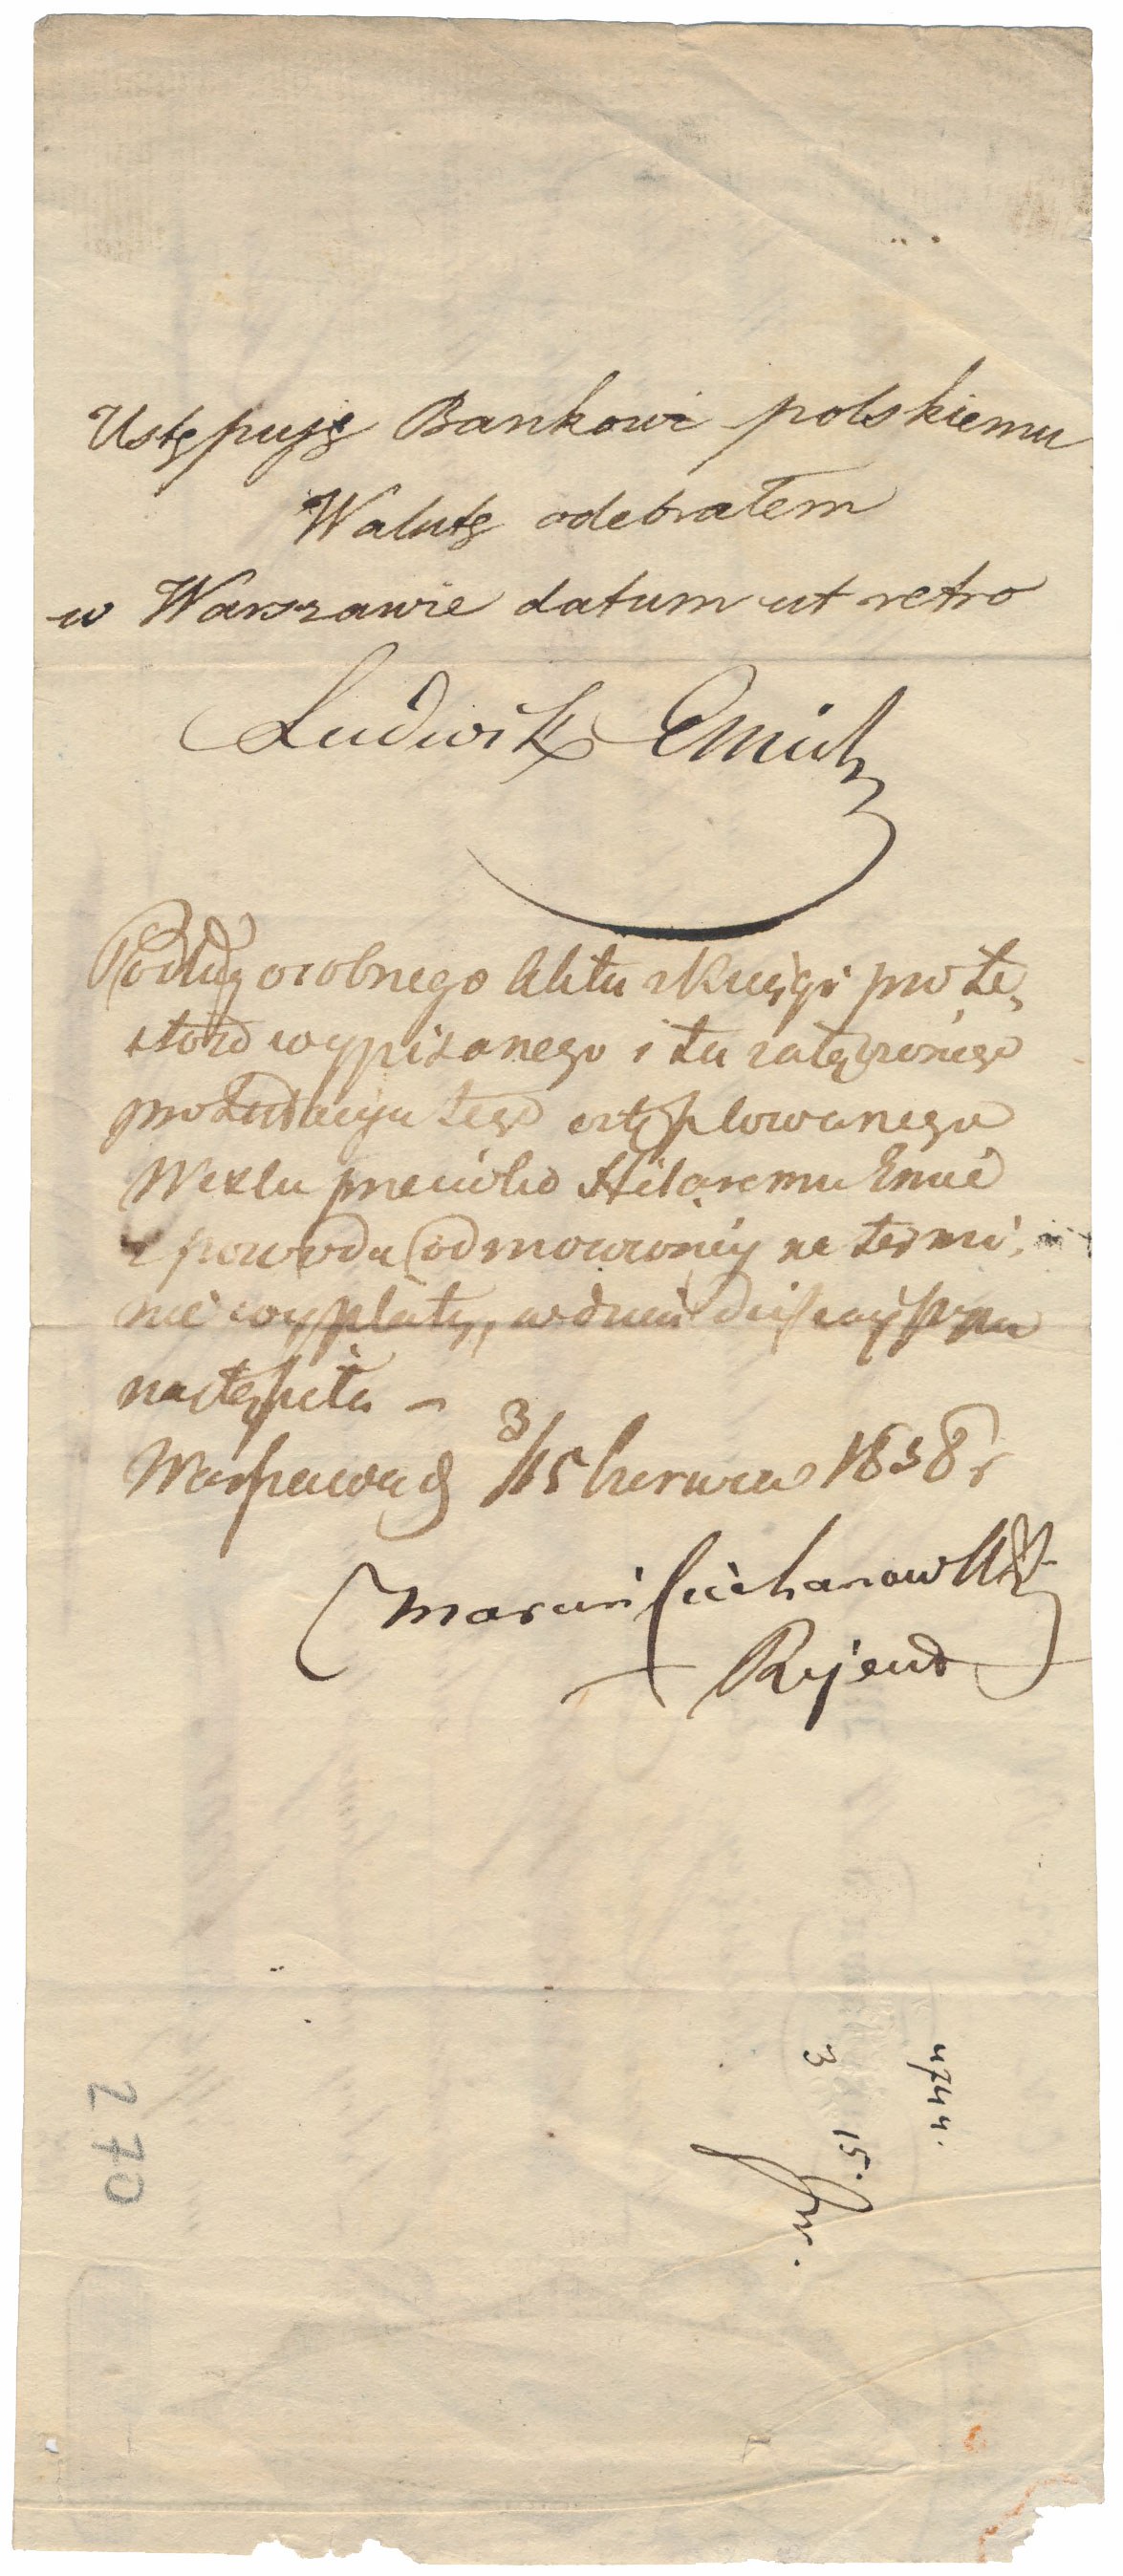 Ustępuję Bankowi polskiemu
Walutę odebrałem
w Warszawie datum ut retro
Ludwik Emich
Podług osobnego Aktu z Księgi prote
stów wypisanego i tu załączonego
protestacyja tego
Wexlu przeciwko Hilaremu
z powodu odmowioney na termi
nie wypłaty, w dniu dzisieyszym
nastąpiła –
Warszawa d 3/15 Czerwca 1838 r
Marcin Ciechanowski
Rejent
4744.
3
15.
270